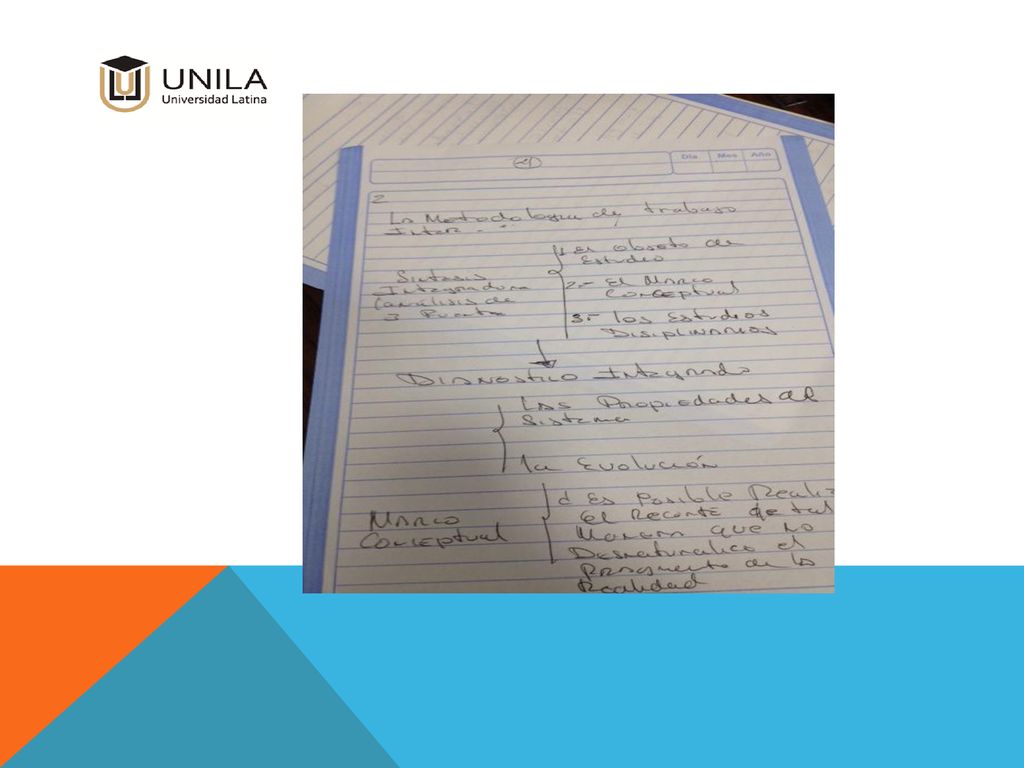 UNILA
Universidad Latina
Día Mes Año
2
La Metodologia de trabajo
Inter -
1 El objeto de
Estudio
Sintesis
Integradora
(análisis de
3
2.- El Marco
Conceptual
3.- los Estudios
Disiplinarios
Dianostico Integrado
Las Propiedades del
Sistema
la Evolución
Marco
Conceptual
¿ Es Posible Realiz
El Recorte de tal
Manera que no
Desnaturalice el
de la
Realidad